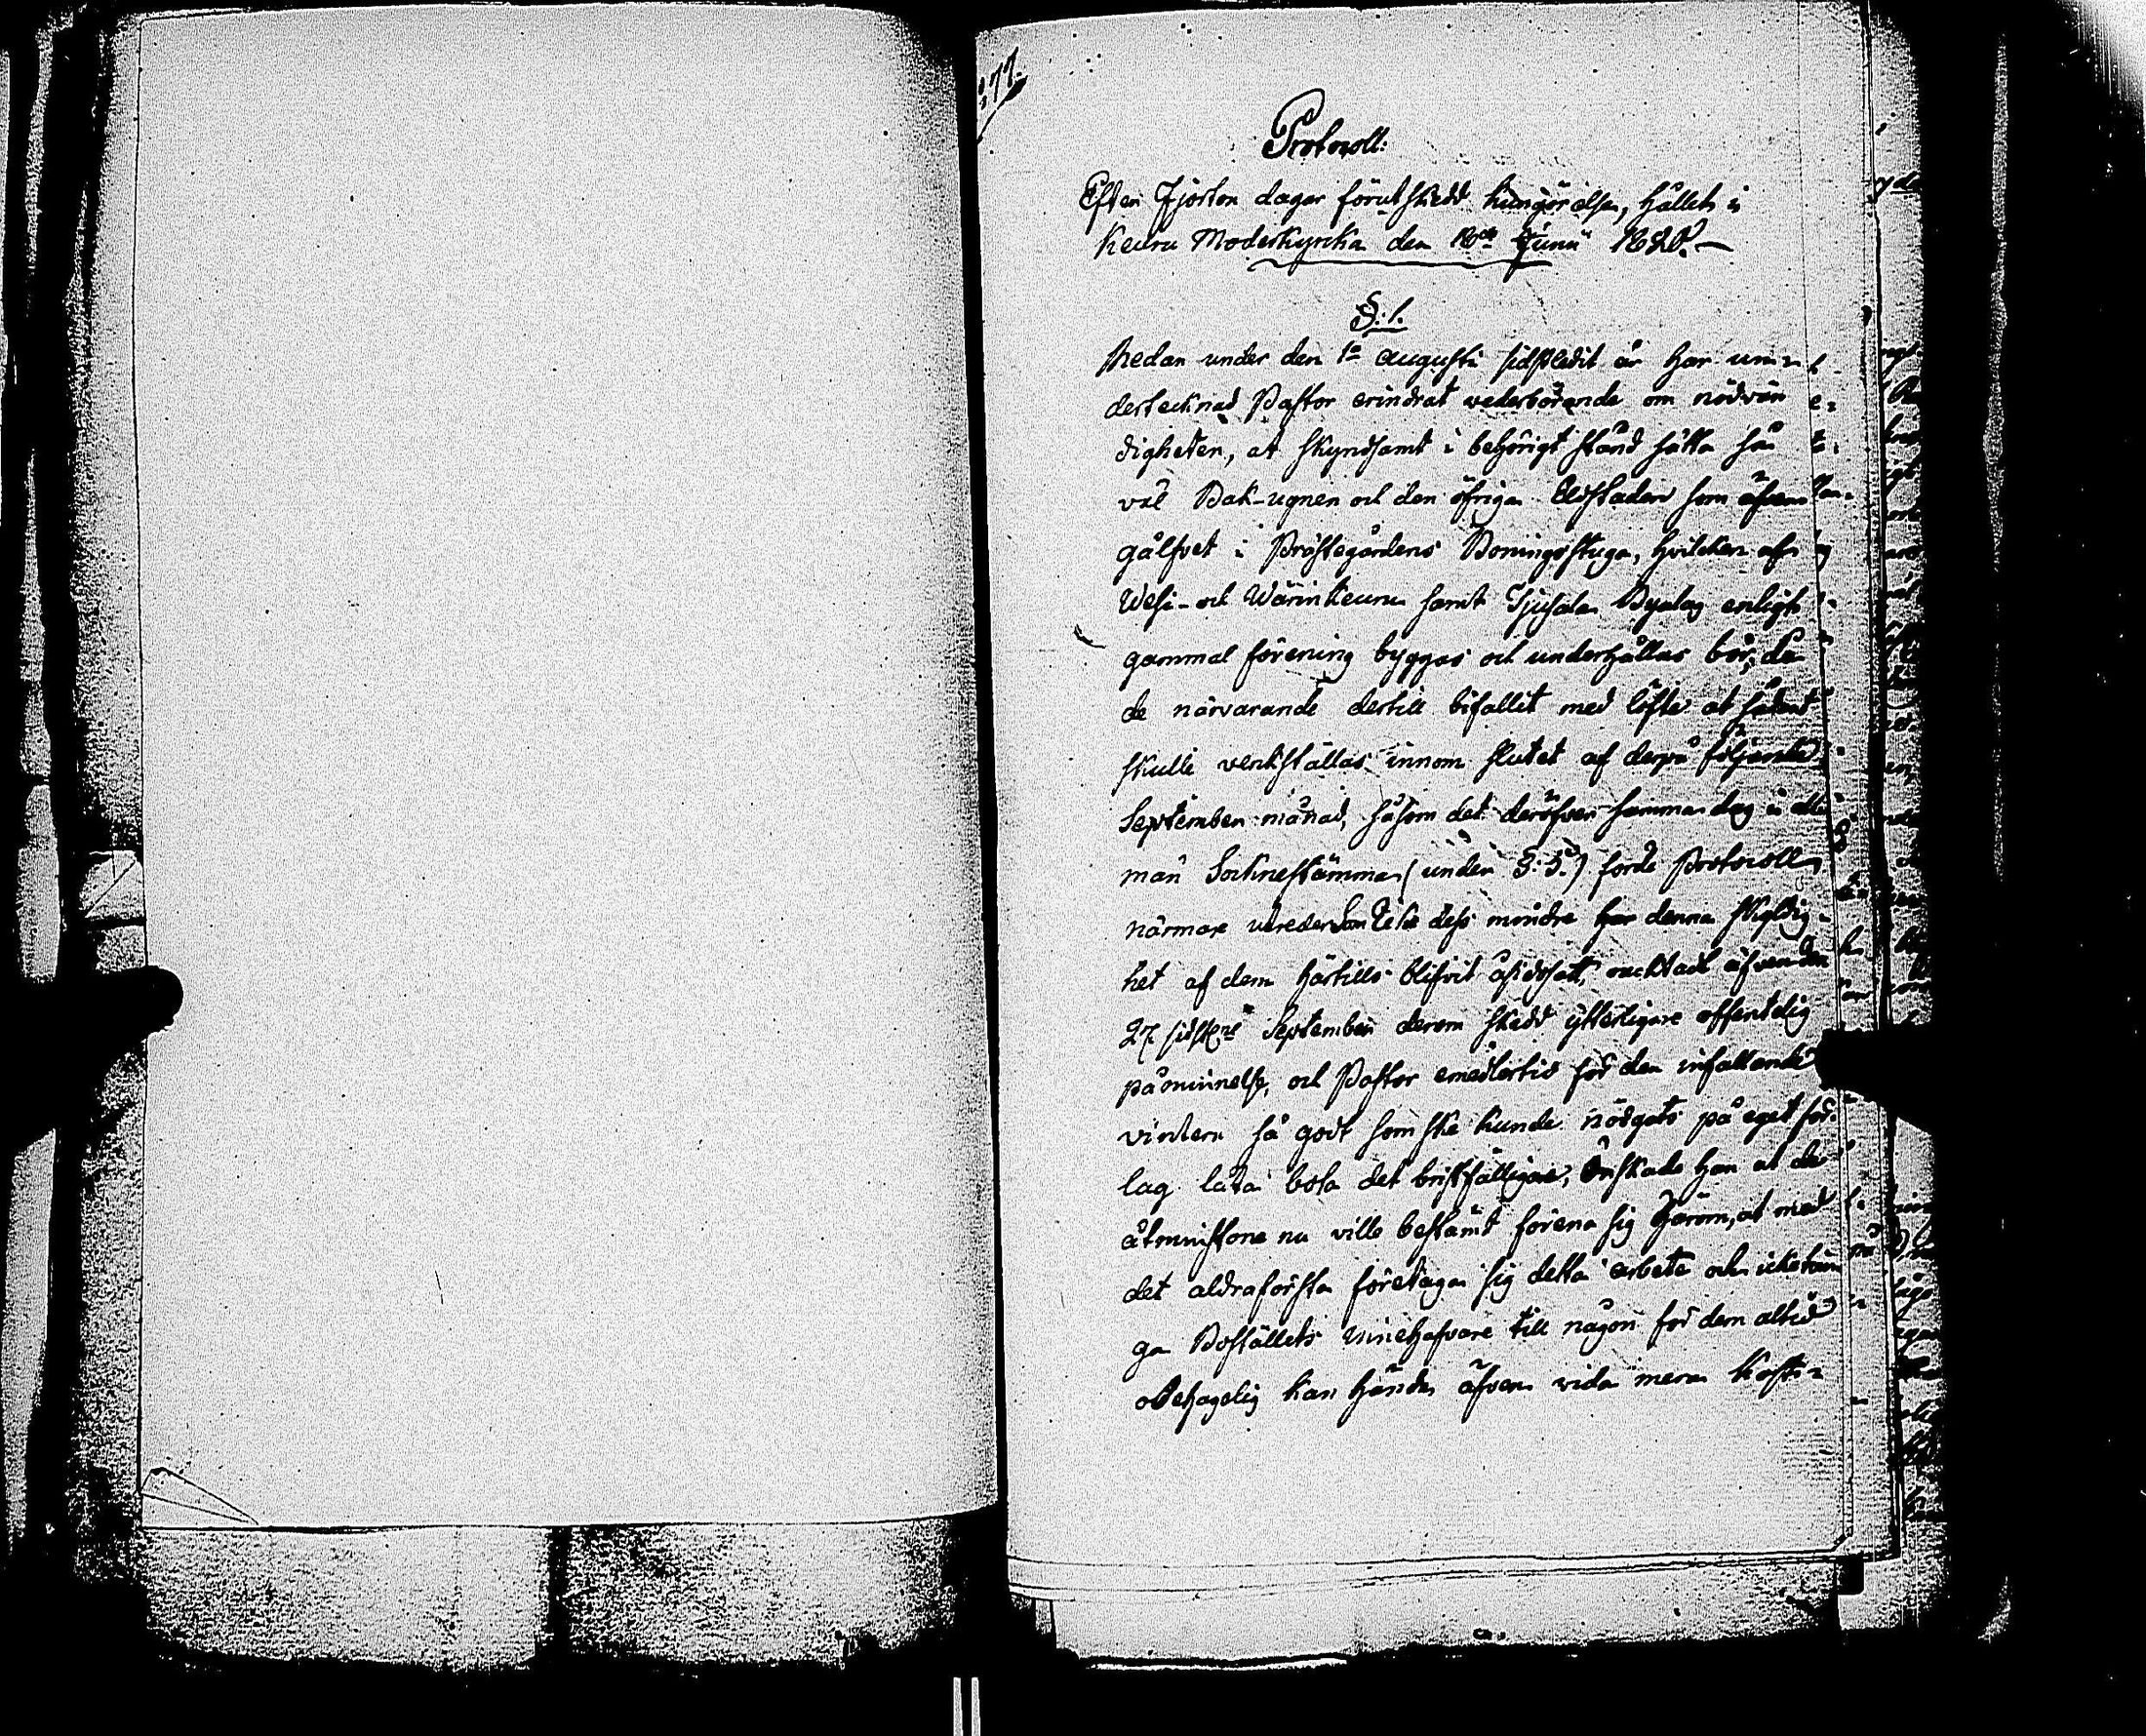 277.
Protocoll:
Efter Fjorton dagar förutskedd kungörelse, hållet i
Keuru Moderkyrcka den 18de Junii 1820.
§. 1.
Redan under den 1a augusti sidstledit år har un-
dertecknad Pastor erindrat vederbörande om nödvän
digheten, at skyndsamt i behörigt stånd sätta så
väl Bak-ugnen och den öfriga Eldstaden som äfven
gålfvet i Prästegårdens Boningsstuga, hvilcken af
Wesi- och Wärinkeuru samt Tjusala Byalag enligt
gammal förening byggas och underhållas bör, då
de närvarande dertill bifallit med löfte at sådant
skulle verkställas innom slutet af derpå följande
September månad, såsom det deröfver samma dag i all
män Socknestämma (under §. 5.) förde Protocoll
närmare utreder. Som icke dess mindre har denna skyldig-
het af dem härtills blifvit åsidosatt, oacktadt äfven den
27 sidstl. September derom skedd ytterligare offentelig
påminnelse, och Pastor emedlertid för den infallande
vintern så godt som ske kunde nödgats på eget för
lag låta bota det bristfälligare, Önskade han at de
åtminstone nu ville bestämt förena sig härom, at med
det aldraförsta företaga sig detta arbete och icke tvin
ga Boställets innehafvare till någon för dem altid
obehagelig kan hända äfven vida mera kost-